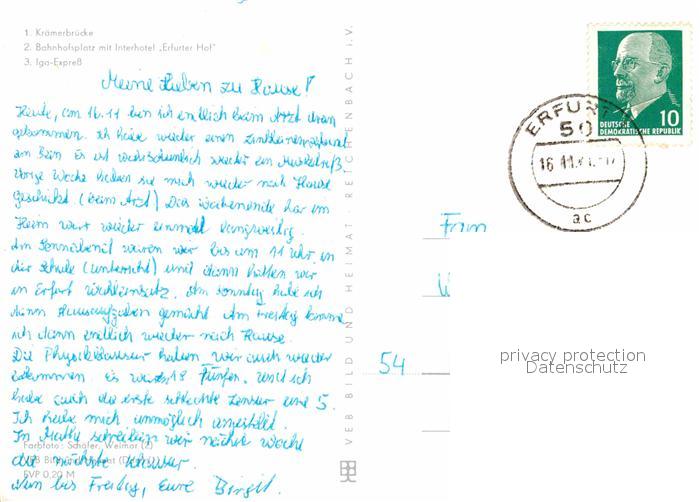 1. Krämerbrücke
2. Bahnhofsplatz mit Interhotel „Erfurter Hof"
3. Iga-Expreß
Meine Lieben zu Hause!
Heute, am 16.11 bin ich endlich beim Arzt dran
gekommen. Ich habe wieder einen
am Bein Es ist wahrscheinlich wieder ein Muskelriß,
vorige Woche haben sie mich wieder nach Hause
geschickt (beim Arzt) Das Wochenende hier im
Heim war wieder einmal langweilig.
Am Sonnabend waren wir bis um 11 Uhr, in
der Schule (Unterricht) und dann hatten wir
in Erfurt Wahleinsatz. Am Sonntag habe ich
dann Hausaufgaben gemacht Am Freitag komme
ich dann endlich wieder nach Hause.
Die Physikklausur haben wir auch wieder
bekommen es waren 18 Fünfen. Und ich
habe auch die erste schlechte Zensur eine 5.
Ich habe mich unmöglich angestellt.
In Mathe schreiben wir nächste Woche
die nächste Klausur.
Nun bis Freitag, Eure Birgit.
Farbfoto: Schäfer, Weimar (2)
VEB
EVP 0,20 M
VEB BILD UND HEIMAT · REICHENBACH i. V.
ERFURT
50
16.11
ac
10
DEUTSCHE
DEMOKRATISCHE REPUBLIK
54
privacy protection
Datenschutz